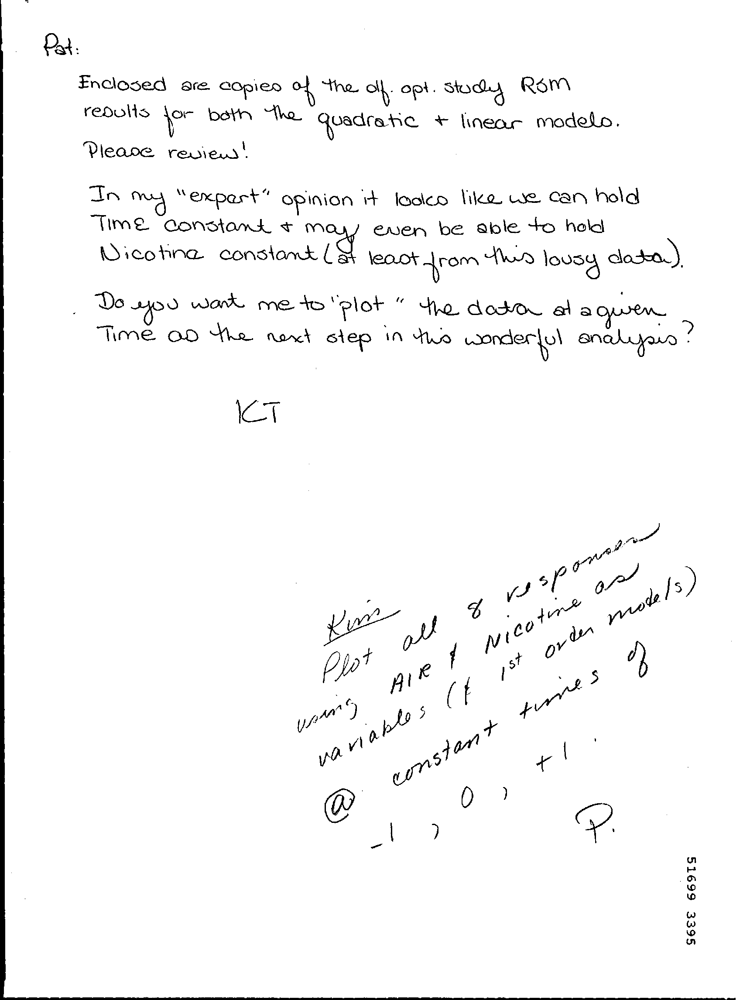 Pat:
Enclosed are copies of the olf. opt. study RSM
results for both the quadratic + linear models.
Please review!
In my "expert" opinion it looks like we can hold
Time constant & may even be able to hold
Nicotine constant (at least from this lousy data).
Do you want me to "plot" the data at a given
Time as the next step in this wonderful analysis?
KT
Kim
Plot all 8 responses
using AIR & Nicotine as
variables (& 1st order models)
@ constant times of
-1, 0, +1.
P.
51699 3395